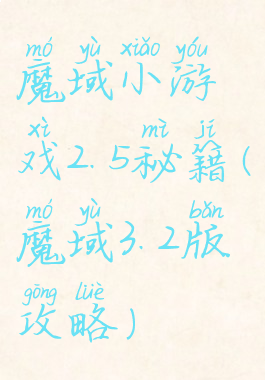 mó yù xiǎo yóu
魔域小游
xì mì jí
戏2.5秘籍(
mó yù bǎn
魔域3.2版
gōng lüè
攻略)